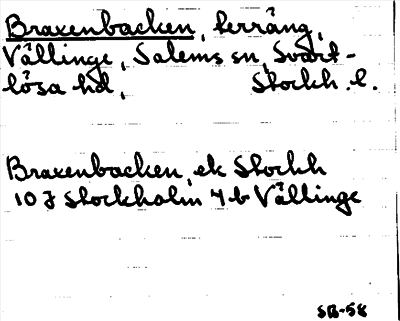 Braxenbacken, terräng,
Vällinge, Salems sn, Svart-
lösa hd, Stockh. l.
Braxenbacken, ek Stockh
10 J Stockholm 4 b Vällinge
SB-58